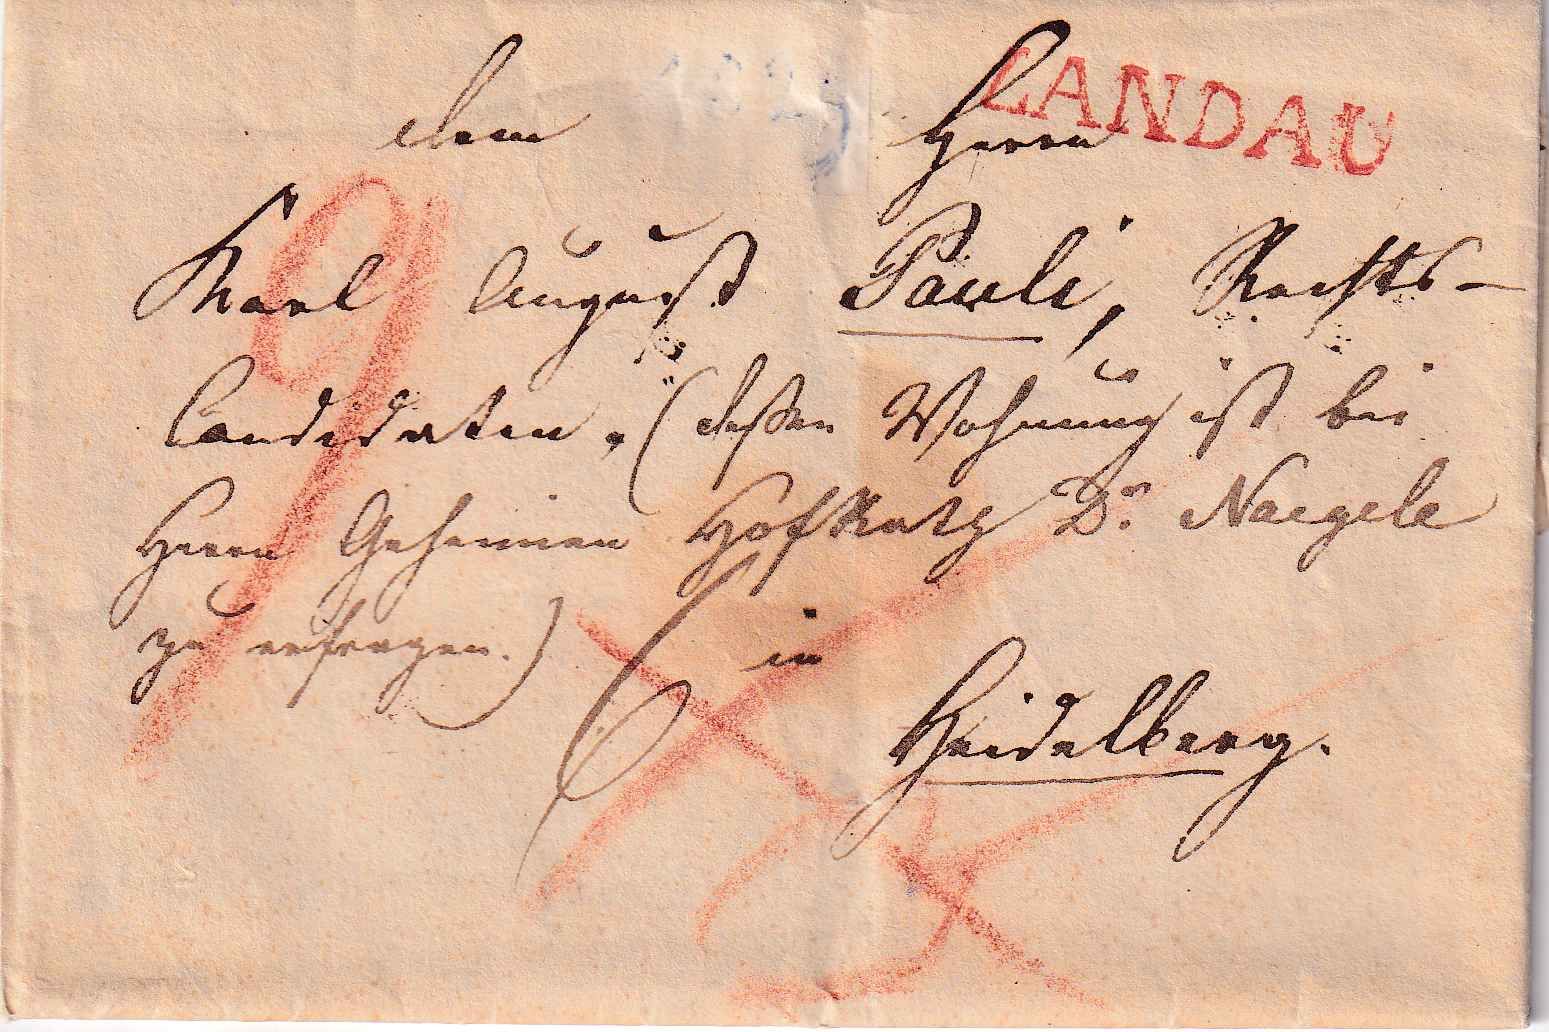 LANDAU
dem Herrn
Karl August Pauli, Rechts-
Candidaten, (deßen Wohnung ist bei
Herrn Geheimen Hofrath Dr. Naegele
zu erfragen.)
in
Heidelberg.
9